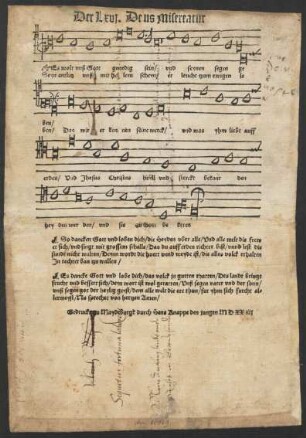 Der Lxvj. Deus Misereatur
Es wolt vnß Gott gnedig sein/ vnd seynen segen ge
Seyn antlitz vnß mit hellem scheyn/ er leuchte zum ewigen le
ben/
ben/ Das wir er ken nen seine werck/ vnd was yhm liebe auff
erden/ Vnd Jhesus Christus heyll vnd sterck bekant den
hey den wer den/ vnd sie zu Gott be keren
So dancken Gott vnd loben dich/ die heyden vber alle/ Vnd alle welt die frewe
sich/ vnd singe mit grossem schalle/ Das du auff erden richter bist/ vnd lest die
sunde nicht walten/ Deyn wort die hut vnd weyde ist/ die alles volck erhalten/
Jn rechter ban zu wallen/
Es dancke Gott vnd lobe dich/ das volck yn gutten thatten/ Das landt bringt
frucht vnd bessert sich/ deyn wort ist wol geratten/ Vnß segen vater vnd der son/
vnß segen got der heylig geyst/ dem alle welt die ere thue/ fur yhm sich furcht al-
lermeyst/ Nu sprechet von hertzen Amen/
Gedruckt zu Magdeburgk durch Hans Knappe den jungen M D XX iiij